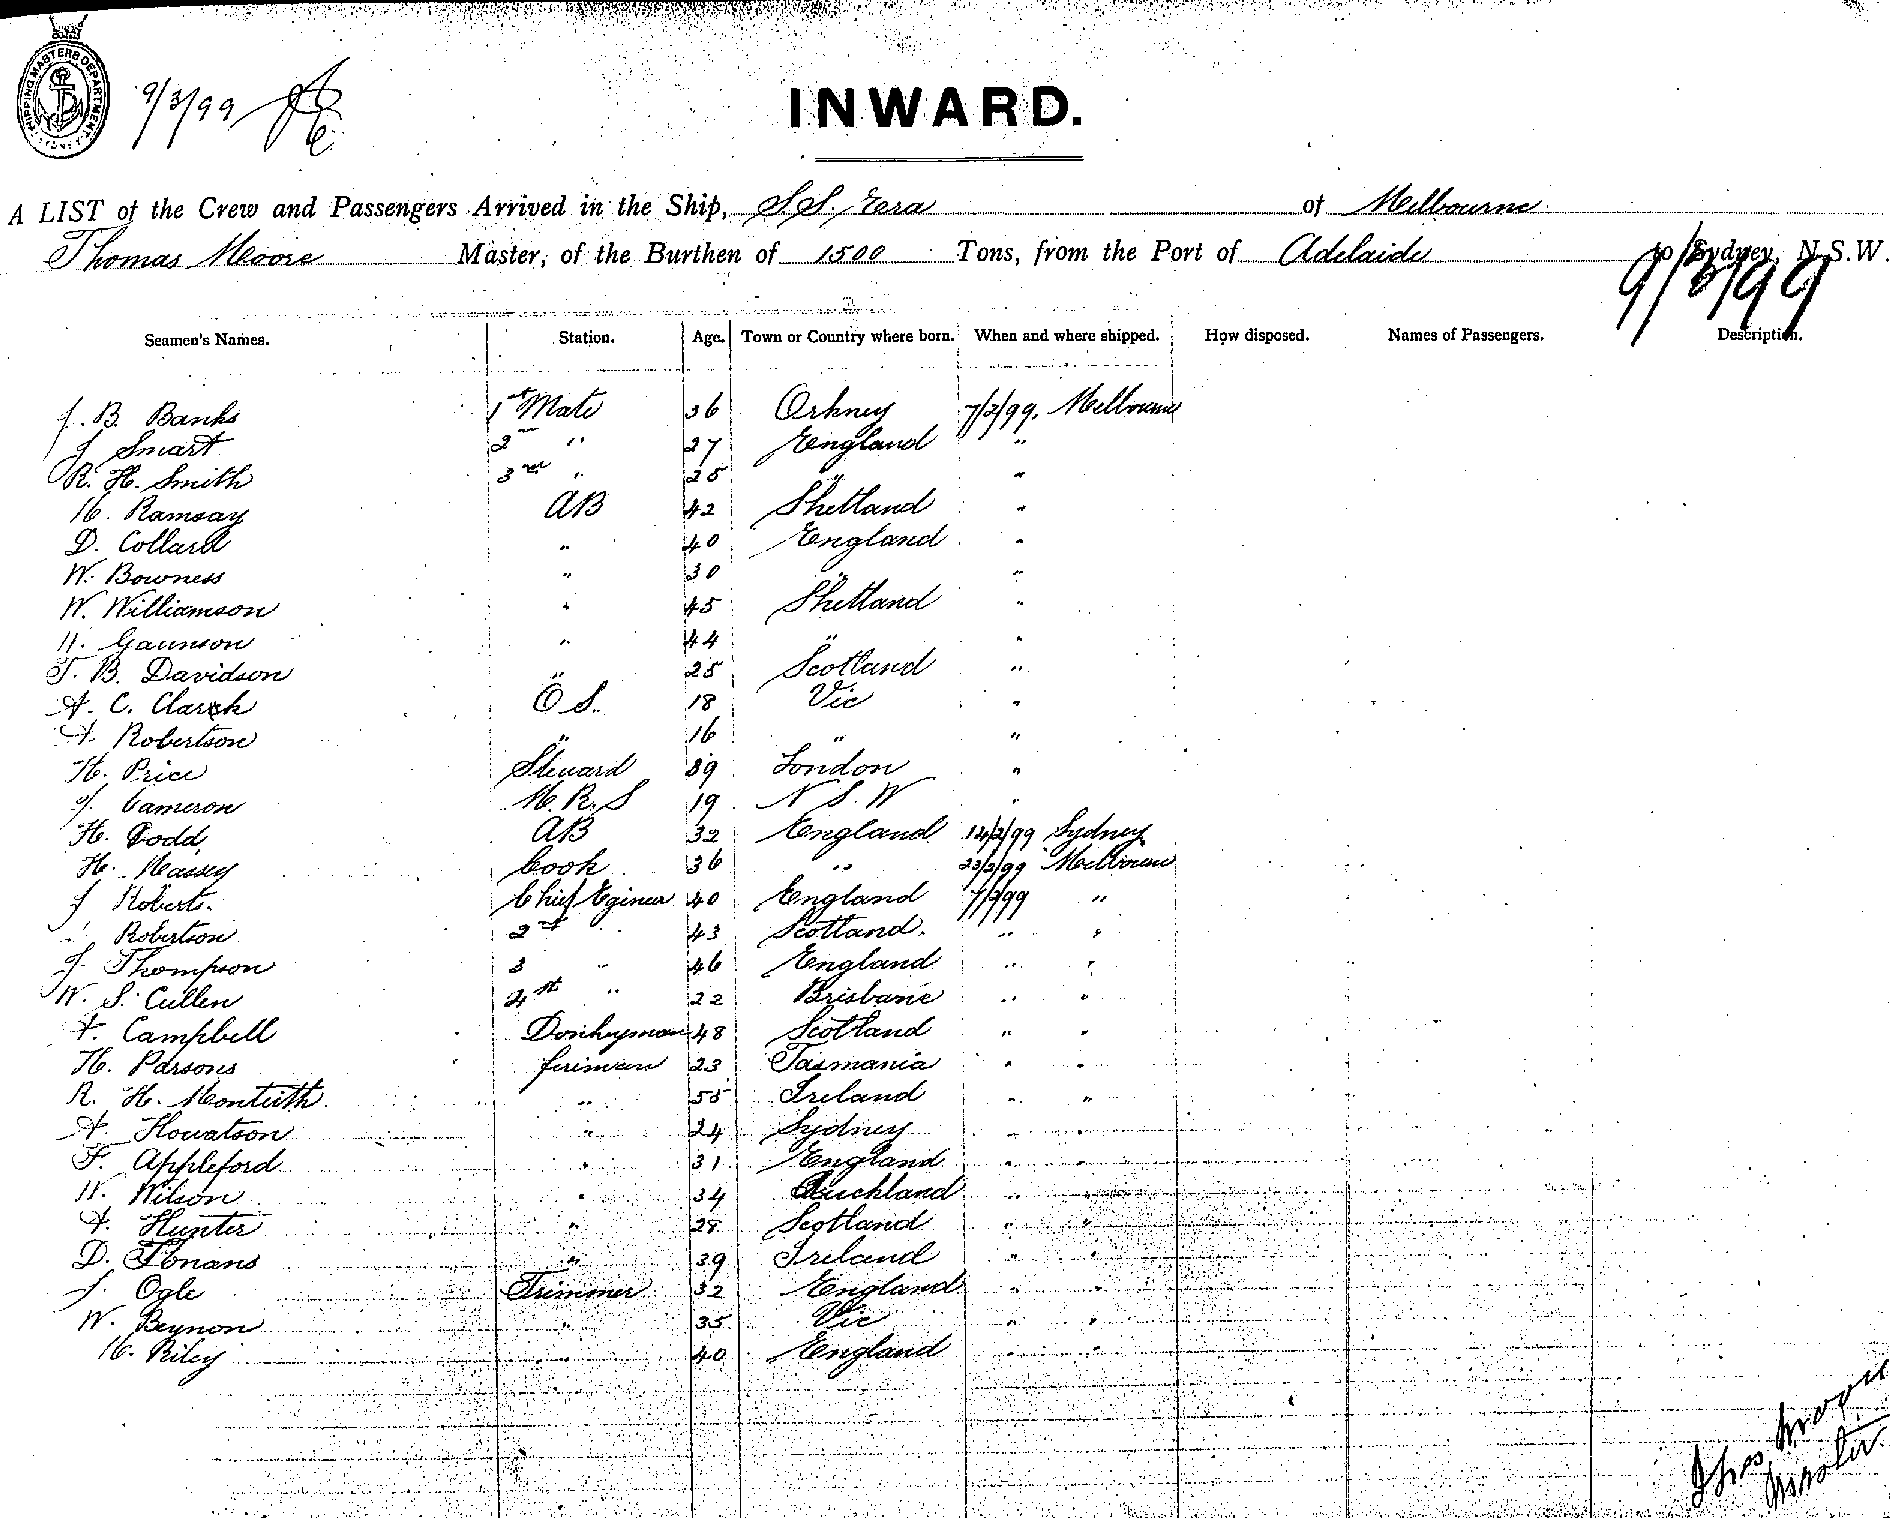 SHIPPING MASTERS DEPARTMENT SYDNEY
9/3/99
INWARD.
A LIST of the Crew and Passengers Arrived in the Ship, S.S. Era of Melbourne
Thomas Moore Master, of the Burthen of 1500 Tons, from the Port of Adelaide to Sydney, N.S.W.
9/3/99
Seamen's Names. Station. Age. Town or Country where born. When and where shipped. How disposed. Names of Passengers. Description.
J. B. Banks 1st Mate 36 Orkney 7/2/99. Melbourne
J Smart 2 " 27 England "
R. H. Smith 3rd " 25 " "
H. Ramsay AB 42 Shetland "
D. Collard " 40 England "
W. Bowness " 30 " "
W. Williamson " 45 Shetland "
H. Gaunson " 44 " "
T. B. Davidson " 25 Scotland "
A. C. Clark O S. 18 Vic "
A. Robertson " 16 " "
H. Price Steward 39 London "
J. Cameron M. R. S 19 N S. W "
H. Dodd AB 32 England 14/2/99 Sydney
H. Massey Cook 36 " 23/2/99 Melbourne
J Roberts. Chief Eginer 40 England 7/2/99 "
Robertson 2nd 43 Scotland. " "
J. Thompson 3 " 46 England " "
W. S. Cullen 4st " 22 Brisbane " "
A. Campbell Donkeyman 48 Scotland " "
H. Parsons fireman 23 Tasmania " "
R. H. Monteith " 55 Ireland " "
A. Howatson " 24 Sydney " "
F. Appleford " 31 England " "
W. Wilson " 34 Auckland " "
A. Hunter " 28 Scotland " "
D. " 39 Ireland " "
J. Ogle Trimmer 32 England " "
W. Beynon " 35 Vic " "
H. Riley " 40 England " "
Thos Moore
Master